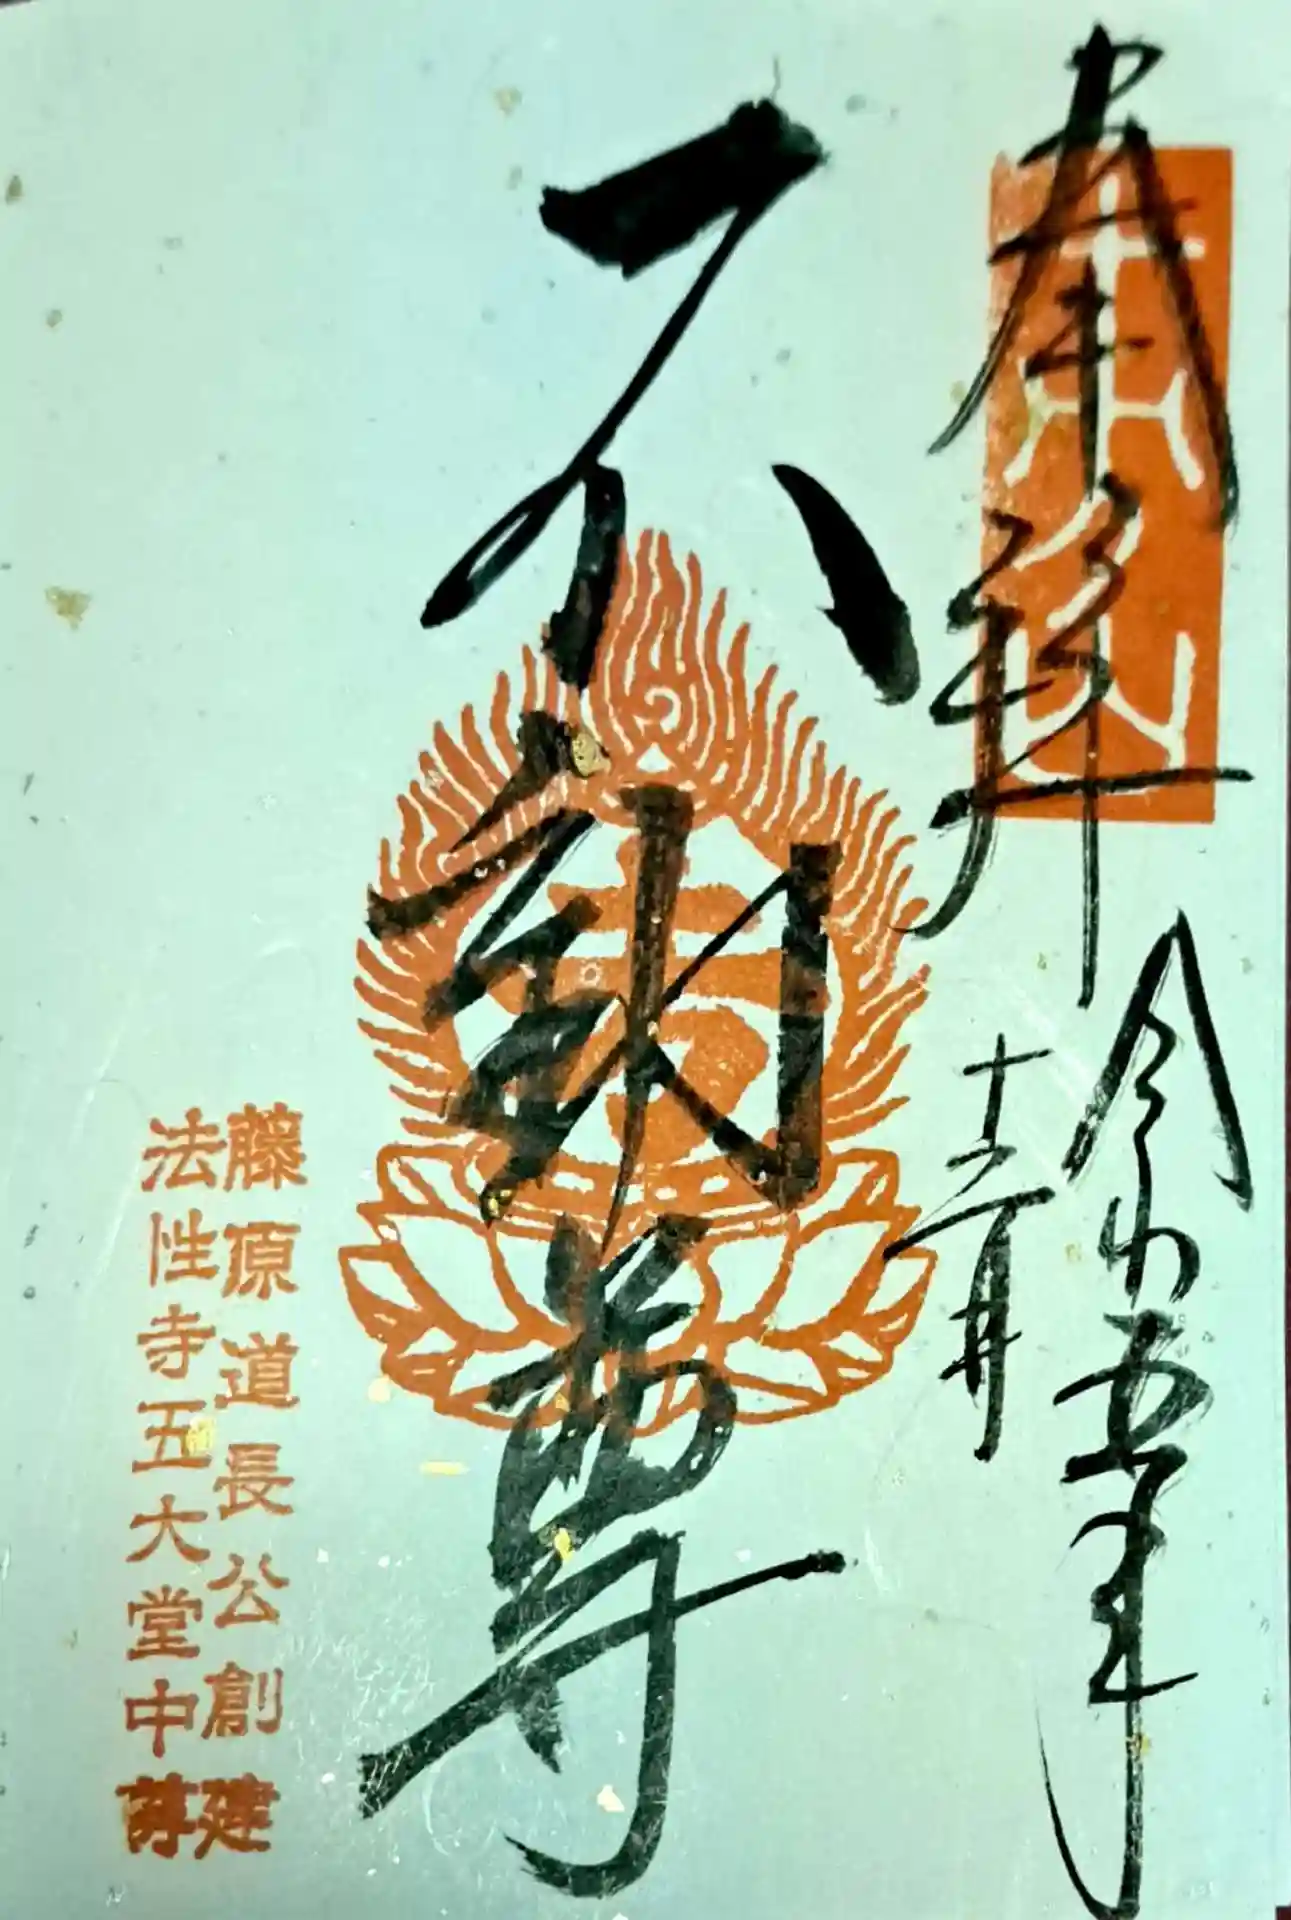 奉拝
令和五年
不動尊
藤原道長公創建
法性寺五大堂中尊